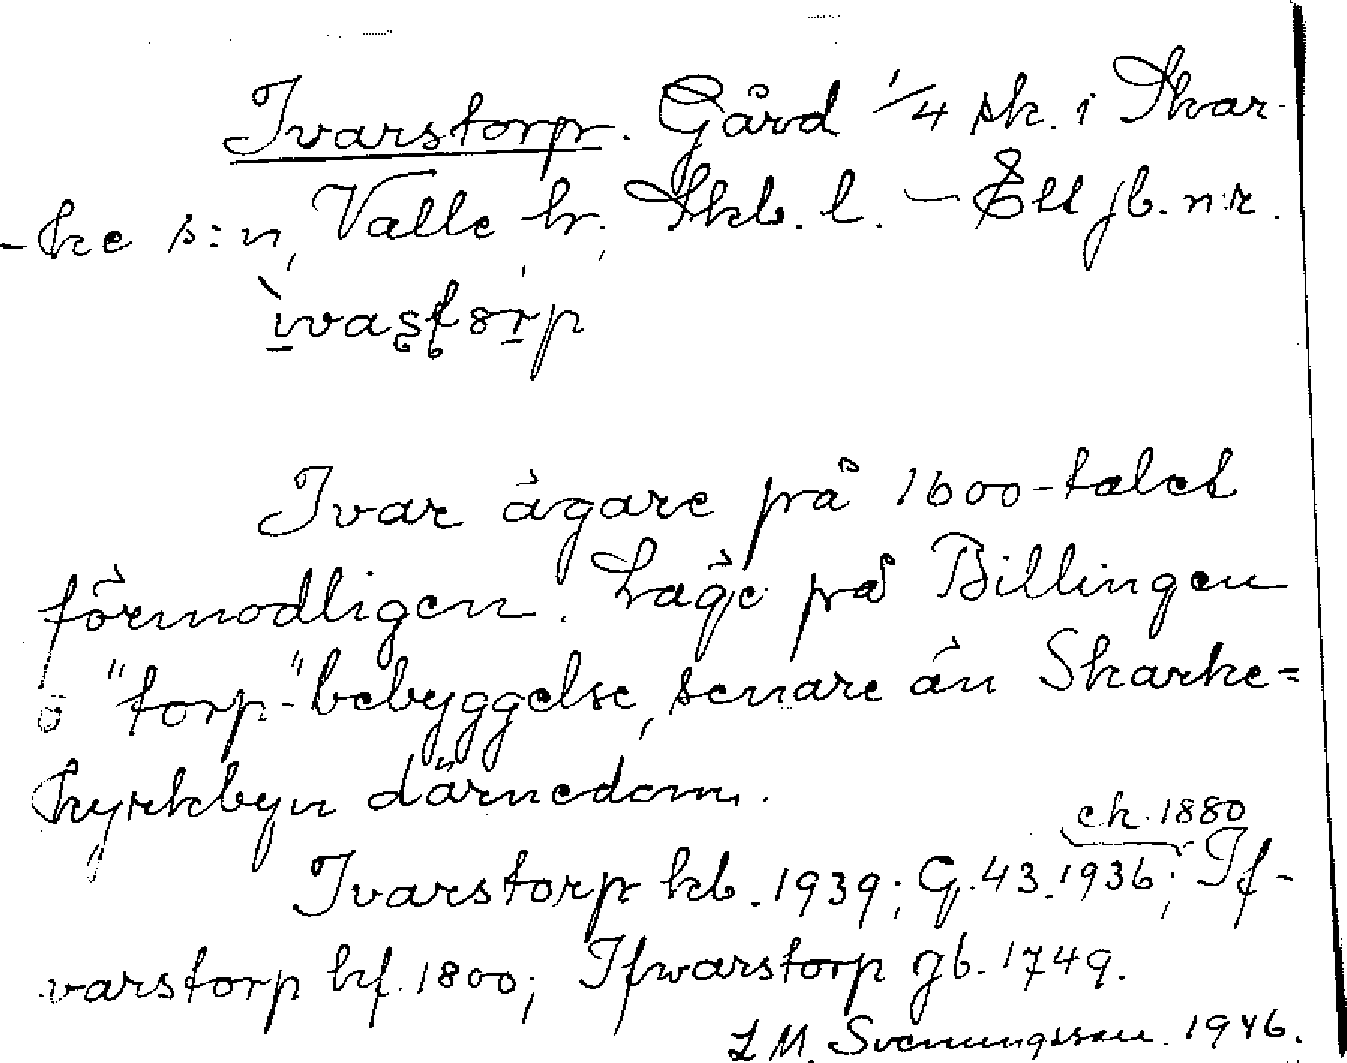 Ivarstorp. Gård 1/4 sk. i Skar-
-ke s:n, Valle hr., Skb. l. — Ett jb. n:r.
ìvaştörp
Ivar ägare på 1600-talet
förmodligen. Läge på Billingen
ö "torp-"bebyggelse, senare än Skarke=
kyrkbyn därnedom.
ek. 1880
Ivarstorp kb. 1939; G. 43. 1936; If-
varstorp hf. 1800; Ifwarstorp gb. 1749.
L M. Svenungsson. 1946.